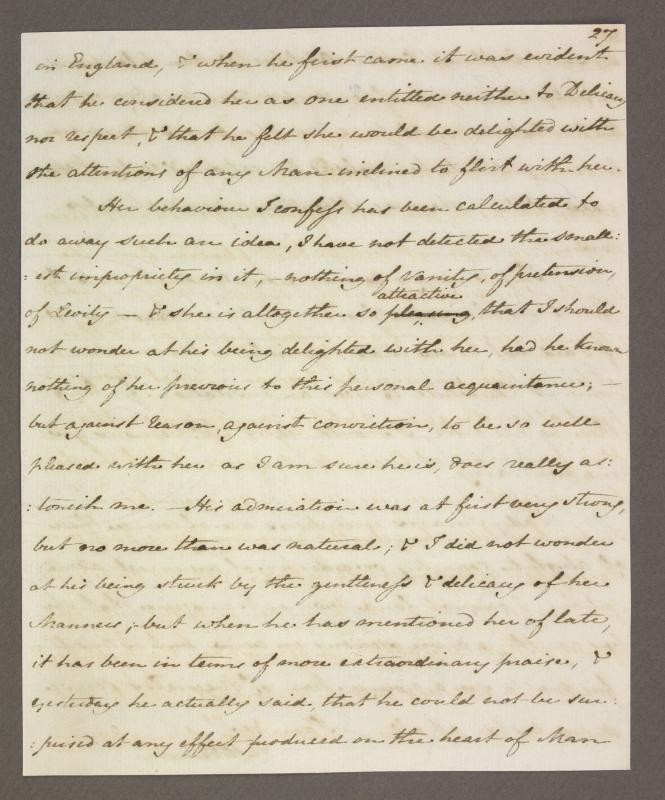 27
in England, & when he first came it was evident
that he considered her as one entitled neither to Delicacy
nor respect, & that he felt she would be delighted with
the attentions of any Man inclined to flirt with her.
Her behaviour I confess has been calculated to
do away such an idea, I have not detected the small:
:est impropriety in it, - nothing of vanity, of pretension,
attractive
of Levity — & she is altogether so pleasing, that I should
not wonder at his being delighted with her, had he known
nothing of her previous to this personal acquaintance; —
but against reason, against conviction, to be so well
pleased with her as I am sure he is, does really as:
:tonish me. — His admiration was at first very strong,
but no more than was natural; & I did not wonder
at his being struck by the gentleness & delicacy of her
Manners; - but when he has mentioned her of late,
it has been in terms of more extraordinary praise, &
yesterday he actually said, that he could not be sur:
:prised at any effect produced on the heart of Man